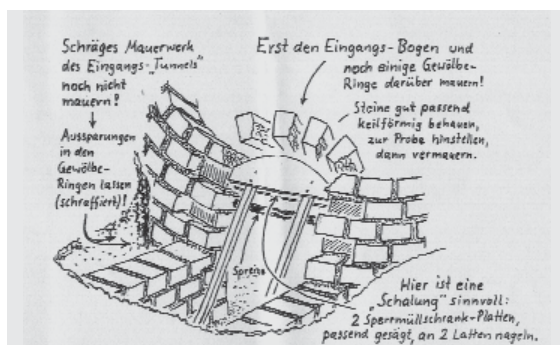 Schräges Mauerwerk
des Eingangs-„Tunnels"
noch nicht
mauern!
Aussparungen
in den
Gewölbe-
Ringen lassen
(schraffiert)!
Erst den Eingangs-Bogen und
noch einige Gewölbe-
Ringe darüber mauern!
Steine gut passend
keilförmig behauen,
zur Probe hinstellen,
dann vermauern.
Spreize
Hier ist eine
„Schalung" sinnvoll:
2 Sperrmüllschrank-Platten,
passend gesägt, an 2 Latten nageln.